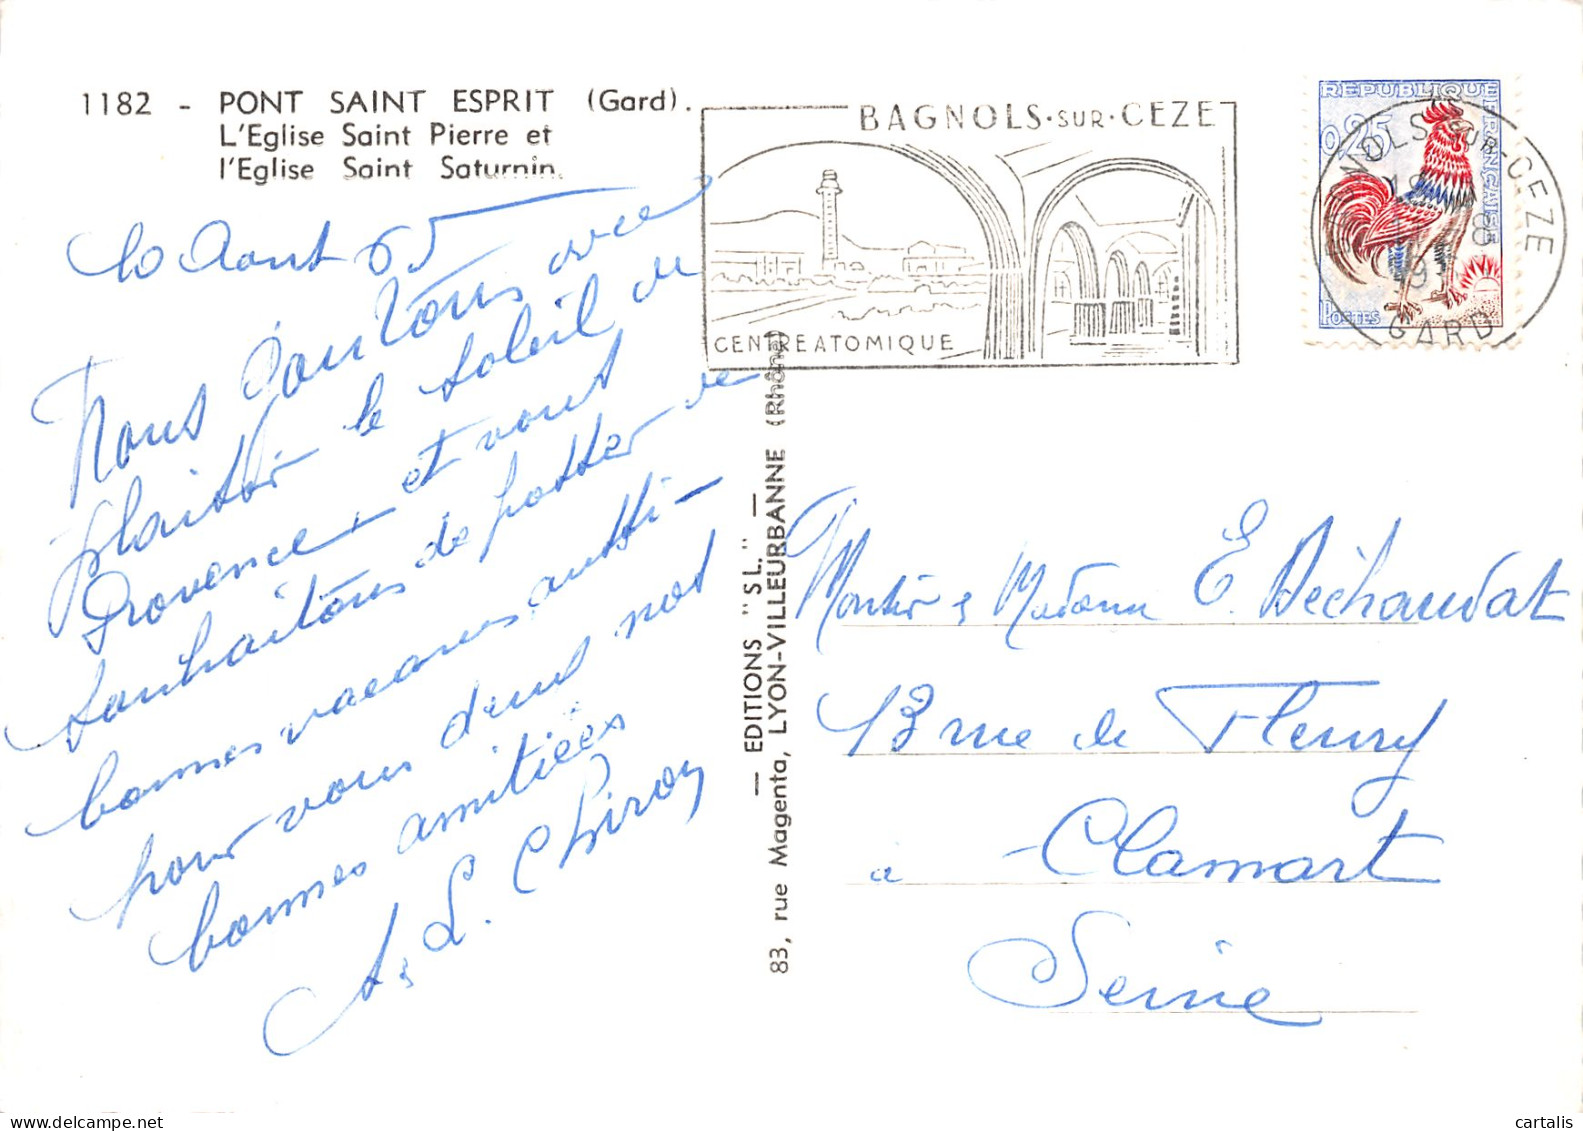 1182 - PONT SAINT ESPRIT (Gard).
L'Eglise Saint Pierre et
l'Eglise Saint Saturnin.
10 Aout 65
Nous goutons avec
plaisir le soleil de
Provence et vous
souhaitons de passer de
bonnes vacances aussi -
pour vous deux nos
bonnes amitiées
A & L. Chiron
— EDITIONS "SL." —
83, rue Magenta, LYON-VILLEURBANNE (Rhône)
BAGNOLS·SUR·CEZE
CENTRE ATOMIQUE
REPUBLIQUE FRANÇAISE
0,25
POSTES
BAGNOLS-SUR-CEZE
GARD
Monsieur & Madame E. Déchaudat
13 rue de Fleury
à Clamart
Seine
www.delcampe.net
cartalis